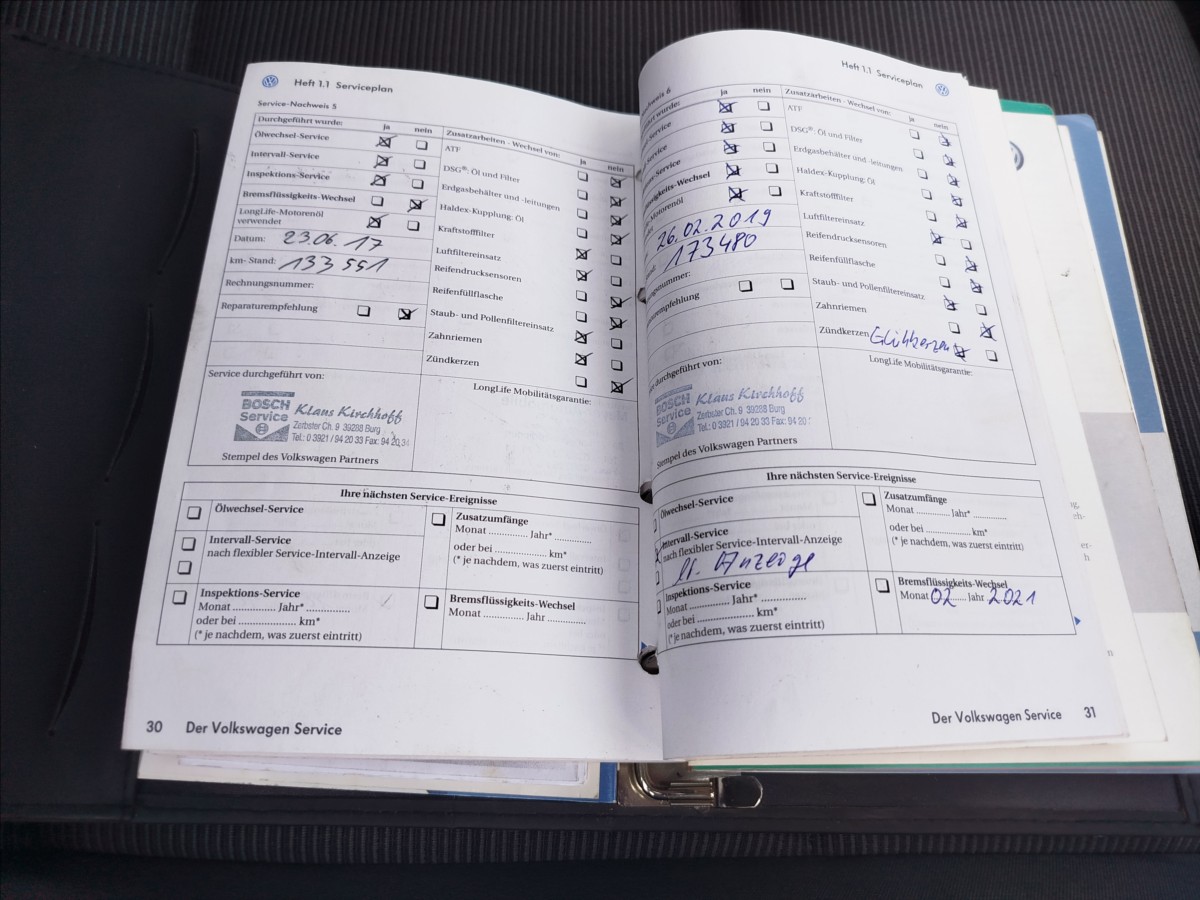 Heft 1.1 Serviceplan
Service-Nachweis 5
Durchgeführt wurde: ja nein
Ölwechsel-Service
Intervall-Service
Inspektions-Service
Bremsflüssigkeits-Wechsel
LongLife-Motorenöl
verwendet
Datum: 23.06.17
km- Stand: 133 551
Rechnungsnummer:
Reparaturempfehlung
Zusatzarbeiten - Wechsel von: ja nein
ATF
DSG®: Öl und Filter
Erdgasbehälter und -leitungen
Haldex-Kupplung: Öl
Kraftstofffilter
Luftfiltereinsatz
Reifendrucksensoren
Reifenfüllflasche
Staub- und Pollenfiltereinsatz
Zahnriemen
Zündkerzen
Service durchgeführt von:
LongLife Mobilitätsgarantie:
BOSCH
Service
Klaus Kirchhoff
Zerbster Ch. 9 39288 Burg
Tel.: 0 3921 / 94 20 33 Fax: 94 20 34
Stempel des Volkswagen Partners
Ihre nächsten Service-Ereignisse
Ölwechsel-Service
Intervall-Service
nach flexibler Service-Intervall-Anzeige
Inspektions-Service
Monat ............. Jahr* ..............
oder bei ................. km*
(* je nachdem, was zuerst eintritt)
Zusatzumfänge
Monat ............. Jahr* .............
oder bei ................. km*
(* je nachdem, was zuerst eintritt)
Bremsflüssigkeits-Wechsel
Monat ............. Jahr .............
30 Der Volkswagen Service
Heft 1.1 Serviceplan
hweis 6
führt wurde: ja nein
-Service
Service
s-Service
ssigkeits-Wechsel
Motorenöl
26.02.2019
173480
ngsnummer:
urempfehlung
Zusatzarbeiten - Wechsel von: ja nein
ATF
DSG®: Öl und Filter
Erdgasbehälter und -leitungen
Haldex-Kupplung: Öl
Kraftstofffilter
Luftfiltereinsatz
Reifendrucksensoren
Reifenfüllflasche
Staub- und Pollenfiltereinsatz
Zahnriemen
Zündkerzen Glühkerzen
durchgeführt von:
LongLife Mobilitätsgarantie:
BOSCH
Service
Klaus Kirchhoff
Zerbster Ch. 9 39288 Burg
Tel.: 0 3921 / 94 20 33 Fax: 94 20
Stempel des Volkswagen Partners
Ihre nächsten Service-Ereignisse
Ölwechsel-Service
Intervall-Service
nach flexibler Service-Intervall-Anzeige
Anzeige
Inspektions-Service
Monat ............. Jahr* ..............
oder bei ................. km*
(* je nachdem, was zuerst eintritt)
Zusatzumfänge
Monat ............. Jahr* .............
oder bei ................. km*
(* je nachdem, was zuerst eintritt)
Bremsflüssigkeits-Wechsel
Monat 02 Jahr 2021
Der Volkswagen Service 31